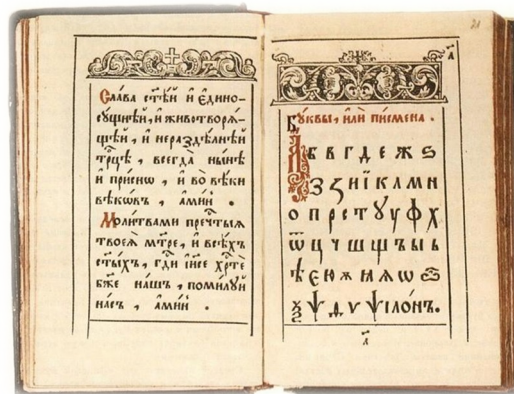 Сла́ва ст҃ѣ́й и҆ є҆ди́но-
сꙋ́щнѣй, и҆ животворѧ́-
щѣй, и҆ нераздѣ́лнѣй
трⷪ҇цѣ, всегда̀ ны́нѣ
и҆ при́снѡ, и҆ во вѣ́ки
вѣкѡ́въ, а҆ми́нь.
Моли́твами пречⷭ҇тыѧ
твоеѧ̀ мт҃ре, и҆ всѣ́хъ
ст҃ы́хъ, гдⷭ҇и і҆и҃се хрⷭ҇тѐ
бж҃е на́шъ, поми́лꙋй
на́съ, а҆ми́нь.
21
а҃
Бꙋ́квы, и҆лѝ пи́смена.
А б в г д е ж ѕ
З ꙁ и ї к л м н
о п р с т ꙋ у ф х
ѿ ц ч ш щ ъ ы ь
ѣ є ю ѫ ѧ ꙗ ѡ
ѯ ѱ ѵ ѱїло́нъ.